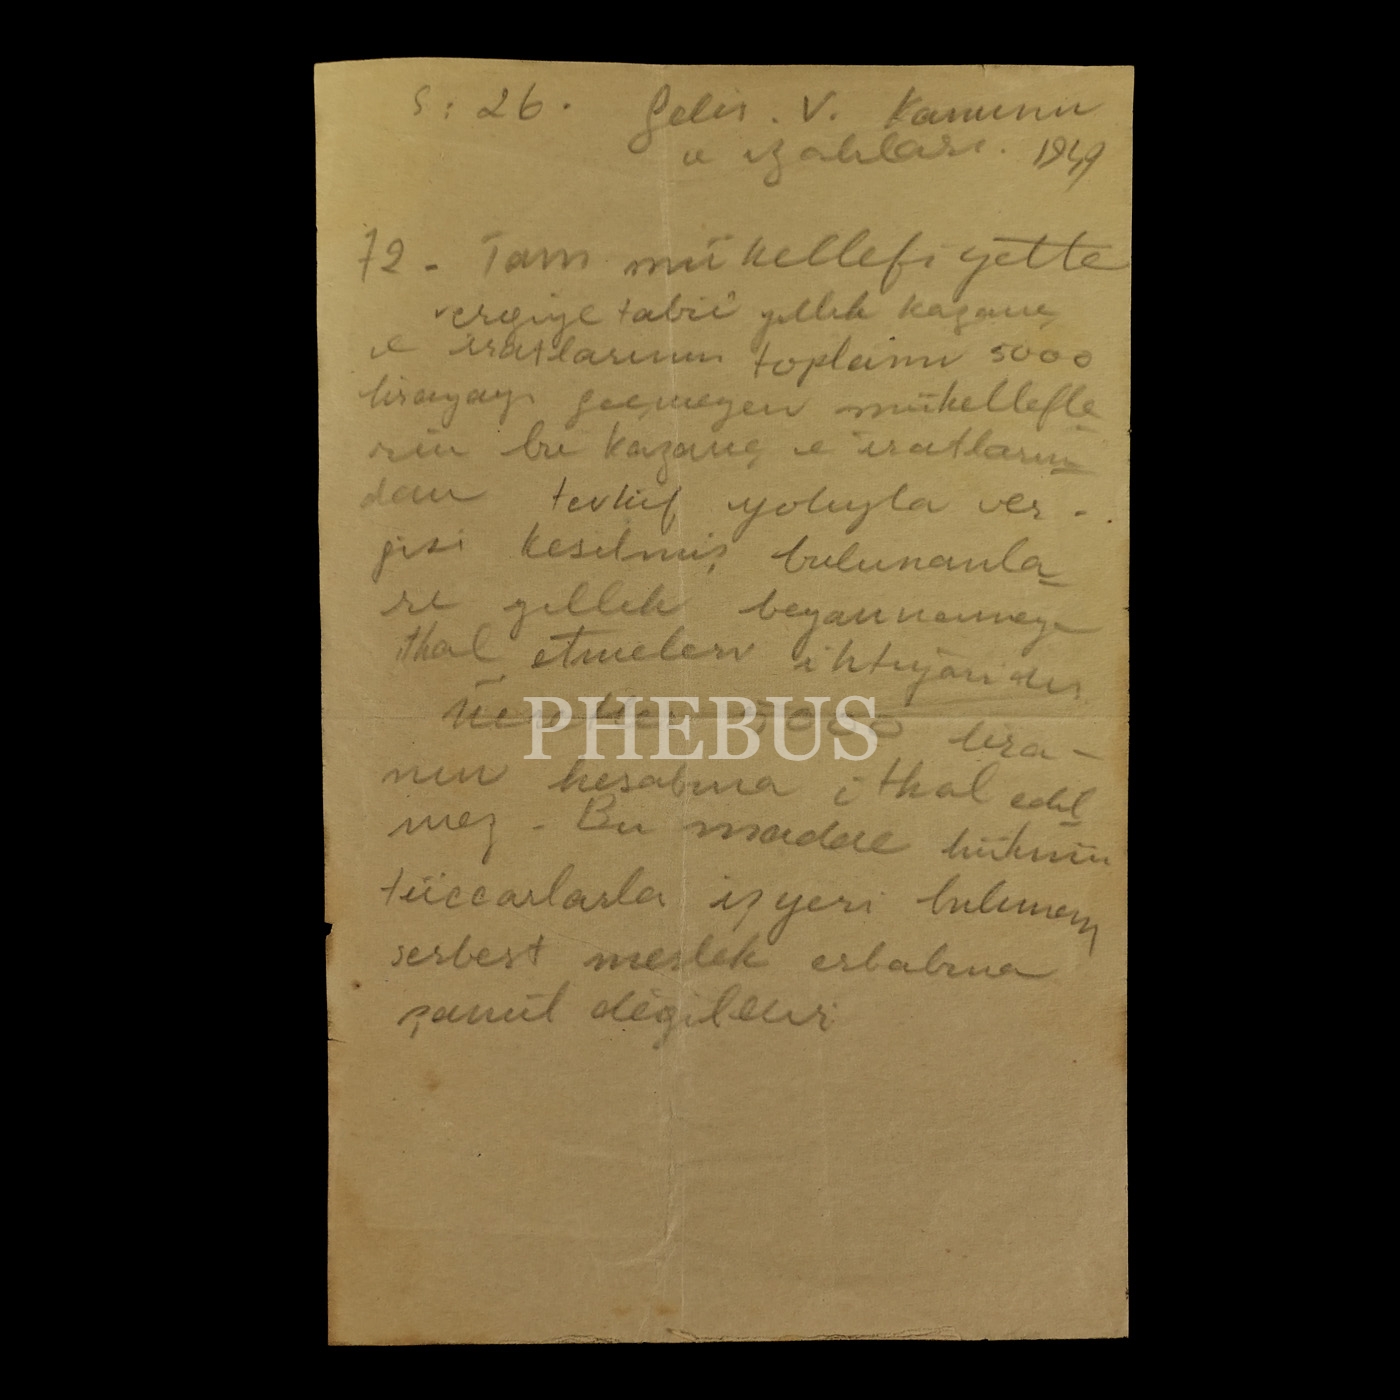 S: 26. Gelir. V. Kanunu
ve izahları. 1949
72 - Tam mükellefiyette
vergiye tabiî yıllık kazanç
ve iratlarının toplamı 5000
lirayayı geçmeyen mükellefle
rin bu kazanç ve iratların
dan tevkif yoluyla ver -
gisi kesilmiş bulunanla
rı yıllık beyannameye
ithal etmeleri ihtiyaridir
5000 lira -
nın hesabına ithal edil
mez - Bu madde hükmü
tüccarlarla işyeri bulunan
serbest meslek erbabına
şamil değildir
PHEBUS